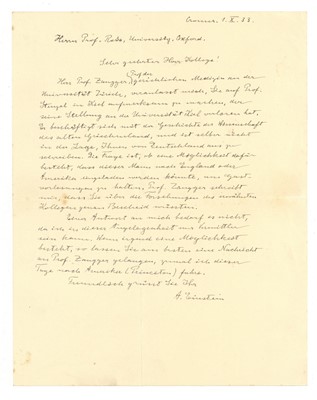 Cromer, 1. X. 33.
Herrn Prof. Rade, University, Oxford.
Sehr geehrter Herr Kollege!
Herr Prof. Zangger, Prof. der gerichtlichen Medizin an der
Universität Zürich, veranlasst mich, Sie auf Prof.
in Kiel aufmerksam zu machen, der
seine Stellung an der Universität Kiel verloren hat.
Er beschäftigt sich mit der Geschichte der
des alten Griechenland, und ist selber nicht
in der Lage, Ihnen von Deutschland aus zu
schreiben. Die Frage ist, ob eine Möglichkeit dafür
besteht, dass dieser Mann nach England oder
Amerika eingeladen werden könnte, um Gast-
vorlesungen zu halten. Prof. Zangger schreibt
mir, dass Sie über die Beziehungen des erwähnten
Kollegen genau Bescheid wüssten.
Eine Antwort an mich bedarf es nicht,
da ich in dieser Angelegenheit nur Vermittler
sein kann. Wenn irgend eine Möglichkeit
besteht, so lassen Sie am besten eine Nachricht
an Prof. Zangger gelangen, zumal ich dieser
Tage nach Amerika (Princeton) fahre.
Freundlich grüsst Sie Ihr
A. Einstein